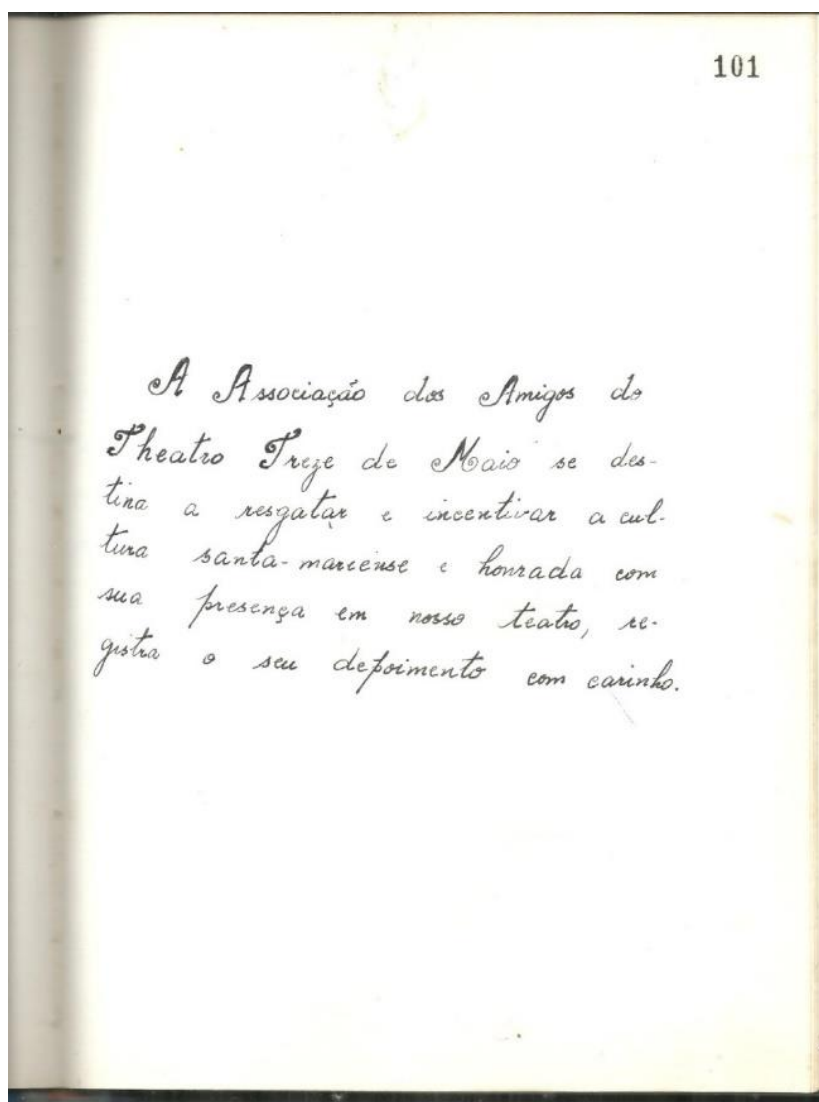 101
A Associação dos Amigos do
Theatro Treze de Maio se des-
tina a resgatar e incentivar a cul-
tura santa-mariense e honrada com
sua presença em nosso teatro, re-
gistra o seu depoimento com carinho.